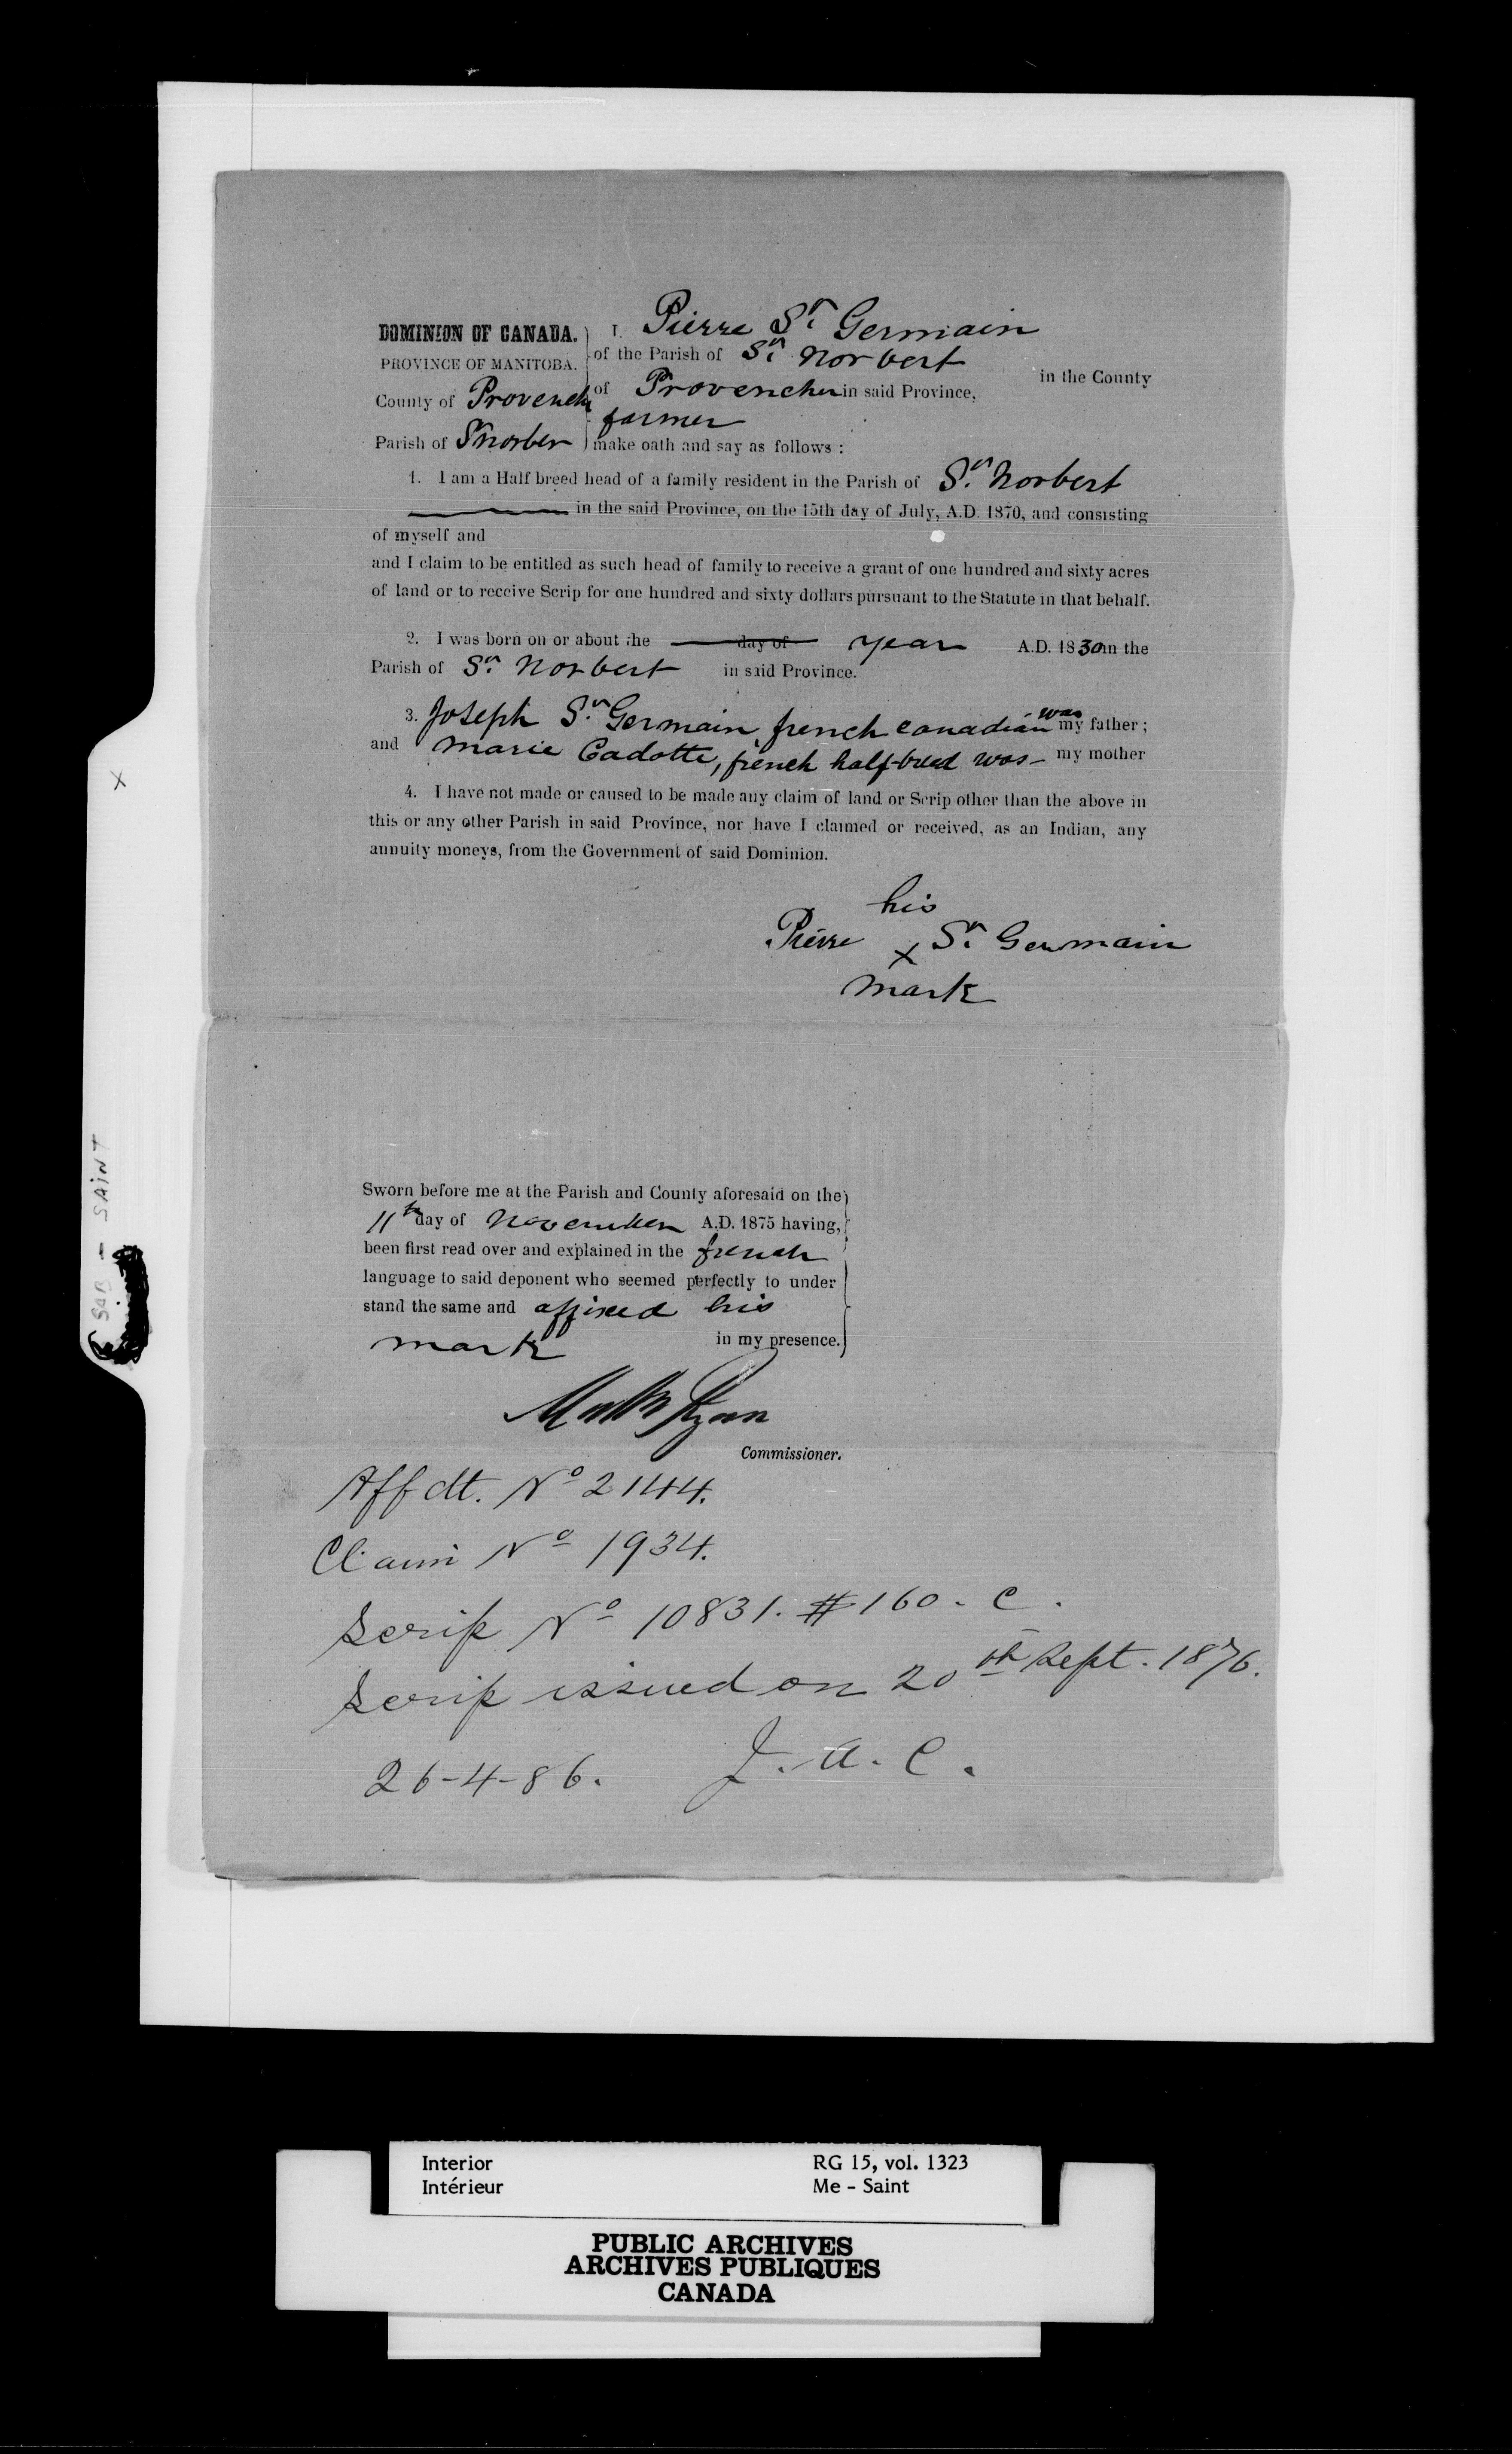 DOMINION OF CANADA.
PROVINCE OF MANITOBA.
County of Provencher
Parish of St norber
I. Pierre St. Germain
of the Parish of St. Norbert
in the County
of Provencher in said Province,
farmer
make oath and say as follows :
1. I am a Half breed head of a family resident in the Parish of St. Norbert
in the said Province, on the 15th day of July, A.D. 1870, and consisting
of myself and
and I claim to be entitled as such head of family to receive a grant of one hundred and sixty acres
of land or to receive Scrip for one hundred and sixty dollars pursuant to the Statute in that behalf.
2. I was born on or about the day of year A.D. 1830 in the
Parish of St. Norbert in said Province.
3. Joseph St. Germain, french canadian was my father ;
and Marie Cadotte, french half-breed was my mother
4. I have not made or caused to be made any claim of land or Scrip other than the above in
this or any other Parish in said Province, nor have I claimed or received, as an Indian, any
annuity moneys, from the Government of said Dominion.
his
Pierre X St. Germain
mark
Sworn before me at the Parish and County aforesaid on the
11th day of November A.D. 1875 having,
been first read over and explained in the french
language to said deponent who seemed perfectly to under
stand the same and affixed his
mark in my presence.
Commissioner.
Affdt. No 2144.
Claim No 1934.
Scrip No 10831. $160. C.
Scrip issued on 20th Sept. 1876.
26-4-86. J. A. C.
X
SAB - SAINT
Interior
Intérieur
RG 15, vol. 1323
Me - Saint
PUBLIC ARCHIVES
ARCHIVES PUBLIQUES
CANADA